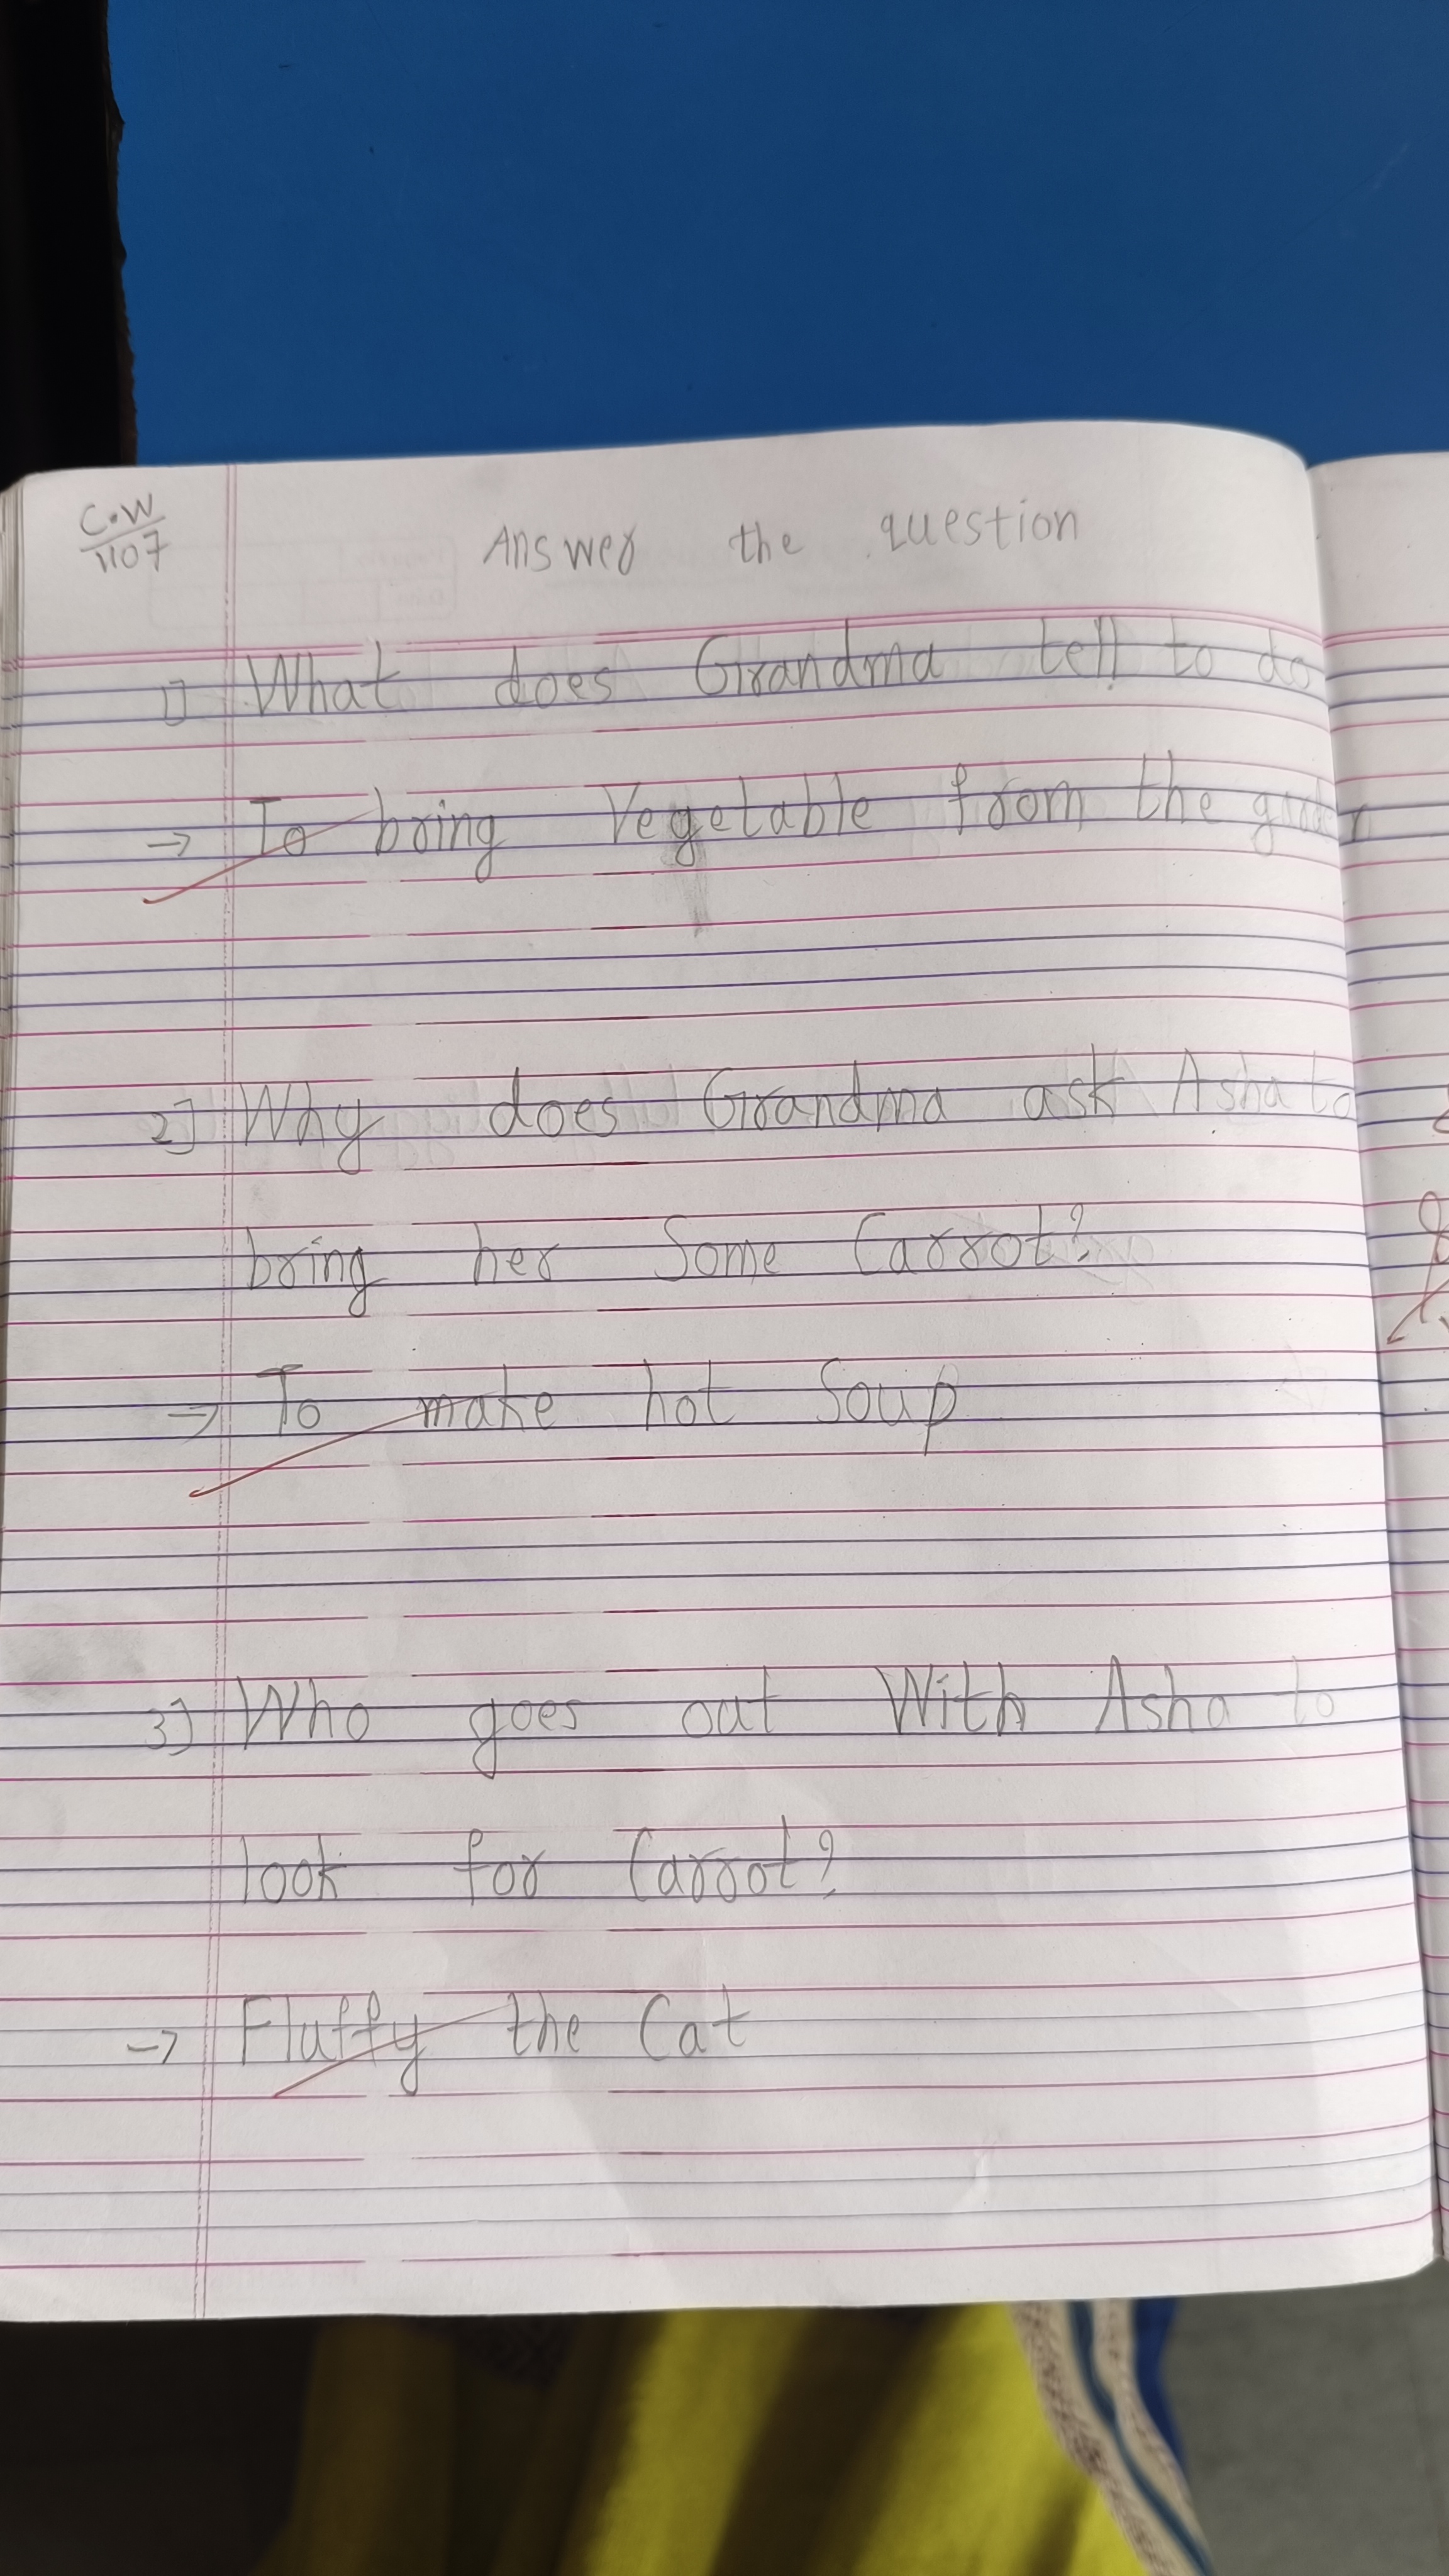 C.W
1107
Answer the question
1] What does Grandma tell to do
→ To bring Vegetable from the
2] Why does Grandma ask Asha to
bring her Some Carrot?
→ To make hot Soup
3] Who goes out With Asha to
look for Carrot?
→ Fluffy the Cat